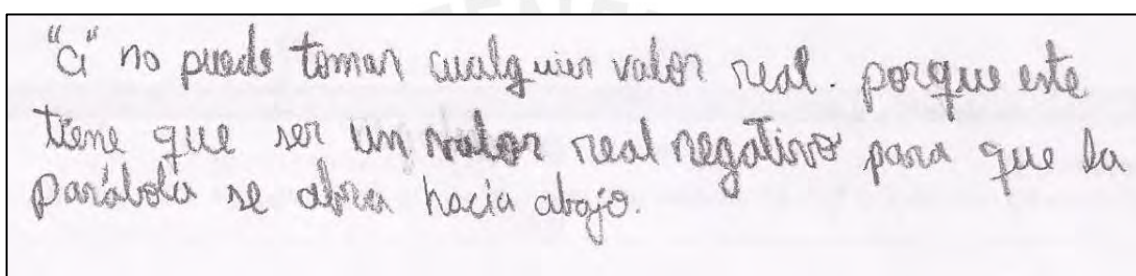 "a" no puede tomar cualquier valor real. porque este
tiene que ser un valor real negativo para que la
parábola se abra hacia abajo.